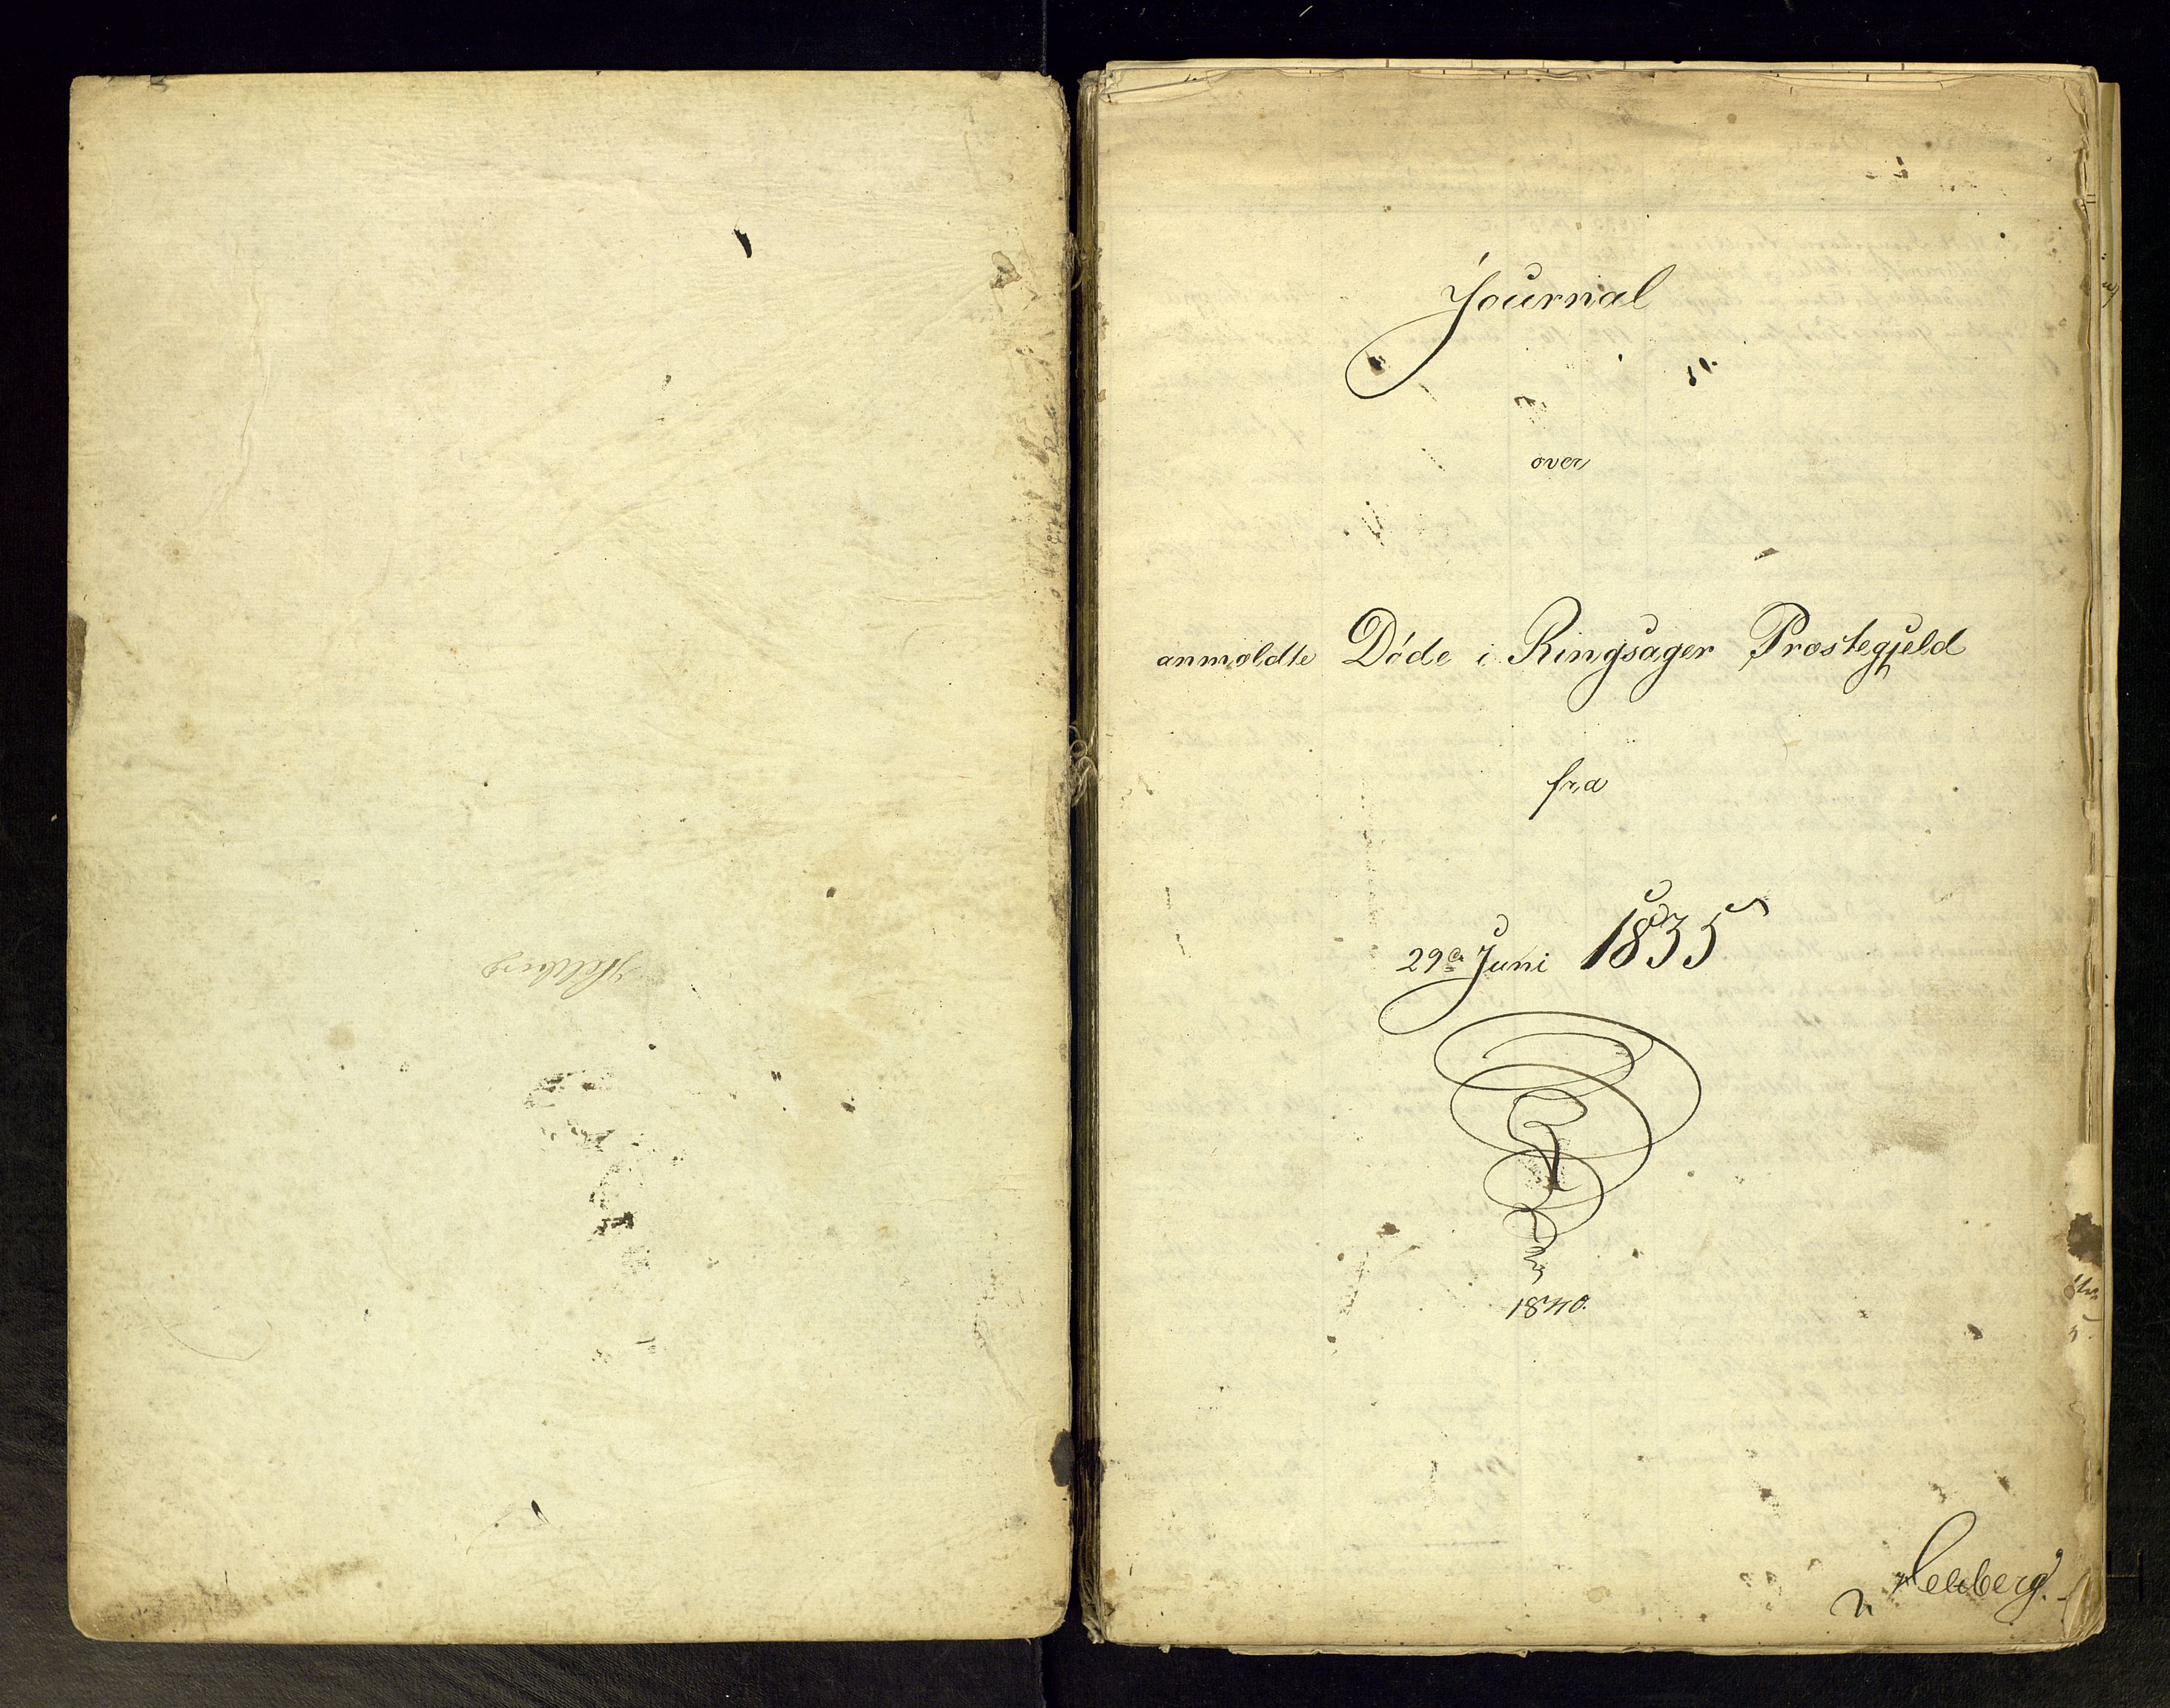 Journal
over
anmeldte Døde i Ringsager Præstegjeld
fra
29de Juni 1835
1840.